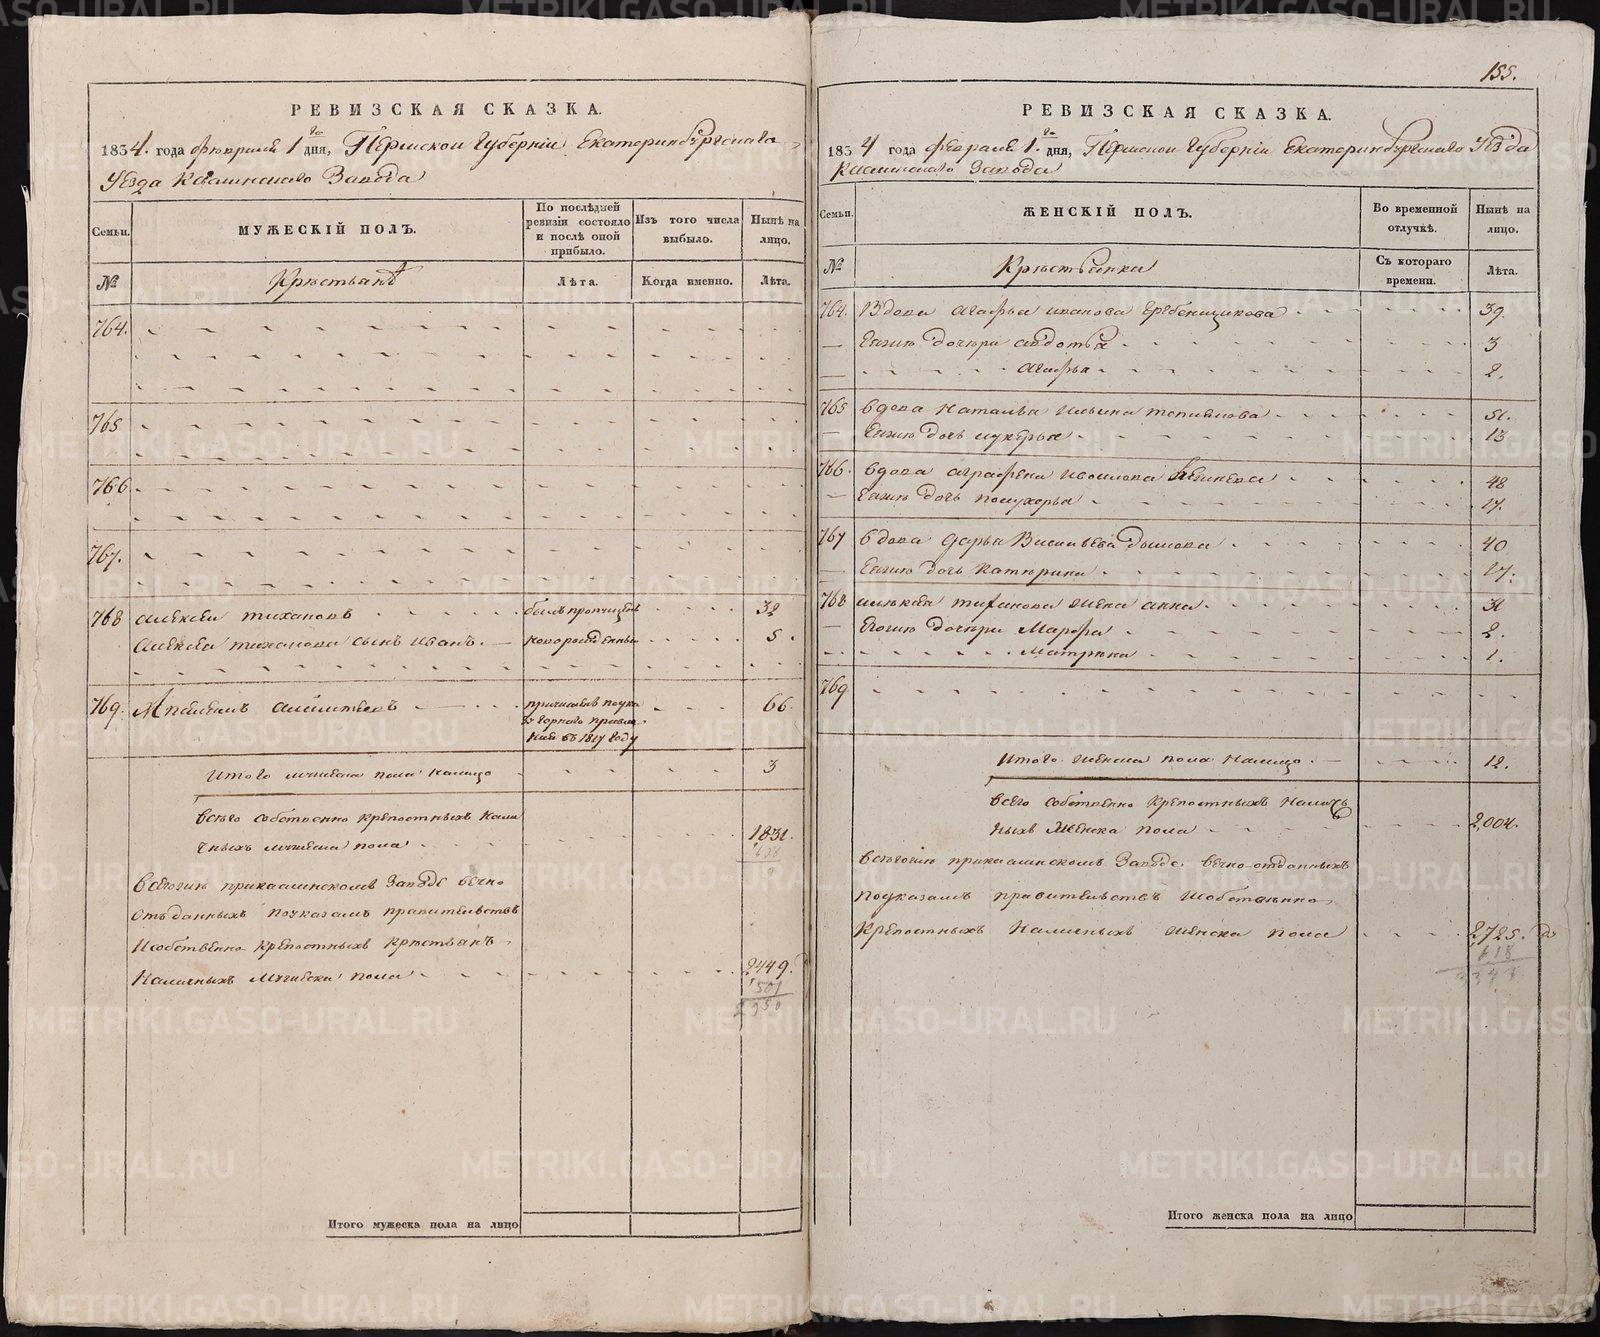 155.
РЕВИЗСКАЯ СКАЗКА.
1834. года февраля 1го дня, Пермской Губерніи Екатеринбургскаго
Уезда Каслинскаго Завода
Семьи.
МУЖЕСКІЙ ПОЛЪ.
По послѣдней ревизіи состояло и послѣ оной прибыло.
Изъ того числа выбыло.
Нынѣ на лицо.
№
Крестьянъ
Лѣта.
Когда именно.
Лѣта.
764.
765
766.
767.
768 Алексей Тихановъ 32
Алексея Тиханова сынъ Иванъ. 5.
769. 66.
въ 1817 году
Итого мужеска пола налицо 3
Всего собственно крепостныхъ нали
чныхъ мужеска пола 1831.
Всегоже прикаслинскомъ Заводе вечно
отъданныхъ поуказамъ правительствъ
Исобственно крепостныхъ крестьянъ
Наличныхъ Мужеска пола 2449.
501
2950
Итого мужеска пола на лицо
РЕВИЗСКАЯ СКАЗКА.
1834 года февраля 1го дня, Пермской Губерніи Екатеринбургскаго Уезда
Каслинскаго Завода
Семьи.
ЖЕНСКІЙ ПОЛЪ.
Во временной отлучкѣ.
Нынѣ на лицо.
№
Крестьянки
Съ котораго времени.
Лѣта.
764. Вдова Агафья Иванова Гребенщикова 39.
Еяжъ дочери Авдотья 3
Агафья 2.
765 Вдова Наталья Ильина 51.
Еяжъ дочь Лукерья 13
766. Вдова Аграфена 48
Еяжъ дочь 17.
767 Вдова Дарья Васильева Дылдова 40
Еяжъ дочь Катерина 17.
768 Алексея Тиханова жена Анна 31
Егожъ дочери Марфа 2.
Матрена 1.
769
Итого женска пола налицо 12.
Всего собственно крепостныхъ налич
ныхъ Женска пола 2,004.
Всегоже прикаслинскомъ Заводе вечно отданныхъ
поуказамъ правительствъ Исобственно
крепостныхъ Наличныхъ женска пола 2725.
618
3343
Итого женска пола на лицо
METRIKI.GASO-URAL.RU